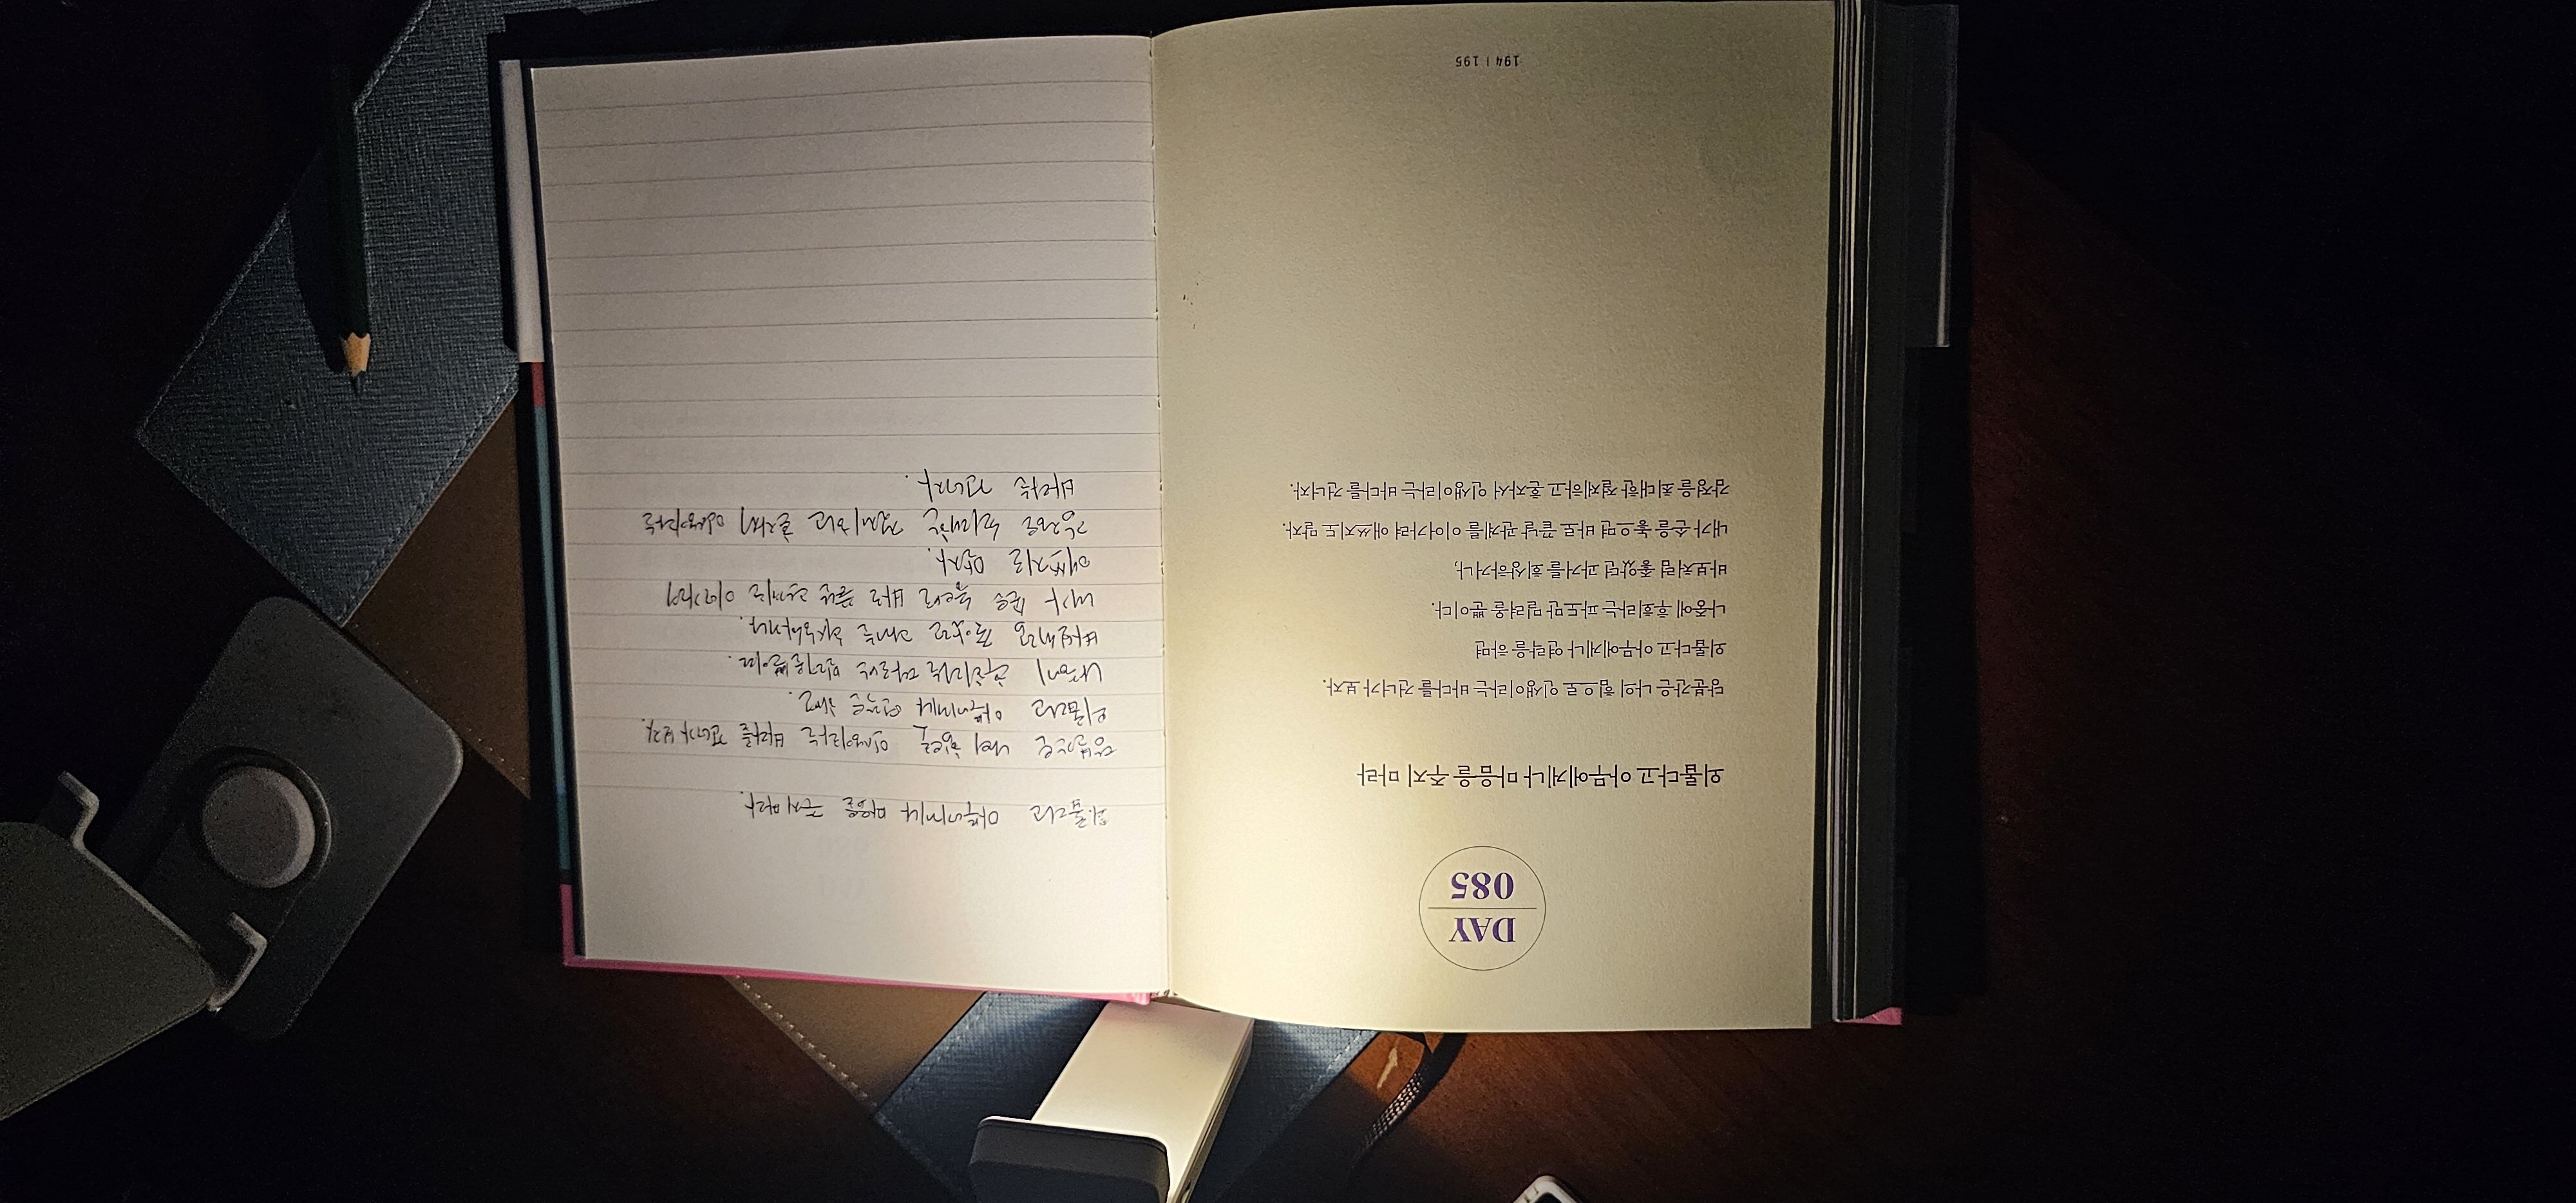 DAY
085
외롭다고 아무에게나 마음을 주지 마라
당분간은 나의 힘으로 인생이라는 바다를 건너가 보자.
외롭다고 아무에게나 연락을 하면
나중에 후회라는 파도만 밀려올 뿐이다.
바보처럼 좋았던 과거를 회상하거나,
내가 손을 놓으면 바로 끝날 관계를 이어가려 애쓰지도 말자.
감정을 최대한 절제하고 혼자서 인생이라는 바다를 건너자.
194 | 195
외롭다고 아무에게나 마음을 주지마라.
당분간은 나의 힘으로 인생이라는 바다를 건너가 보자.
외롭다고 아무에게나 연락을
나중에 후회라는 파도만
바보처럼 좋았던 과거를
내가 손을 놓으면 바로 끝날 관계를 이어가려
애쓰지도 말자.
최대한 절제하고 혼자서 인생이라는
바다를 건너자.